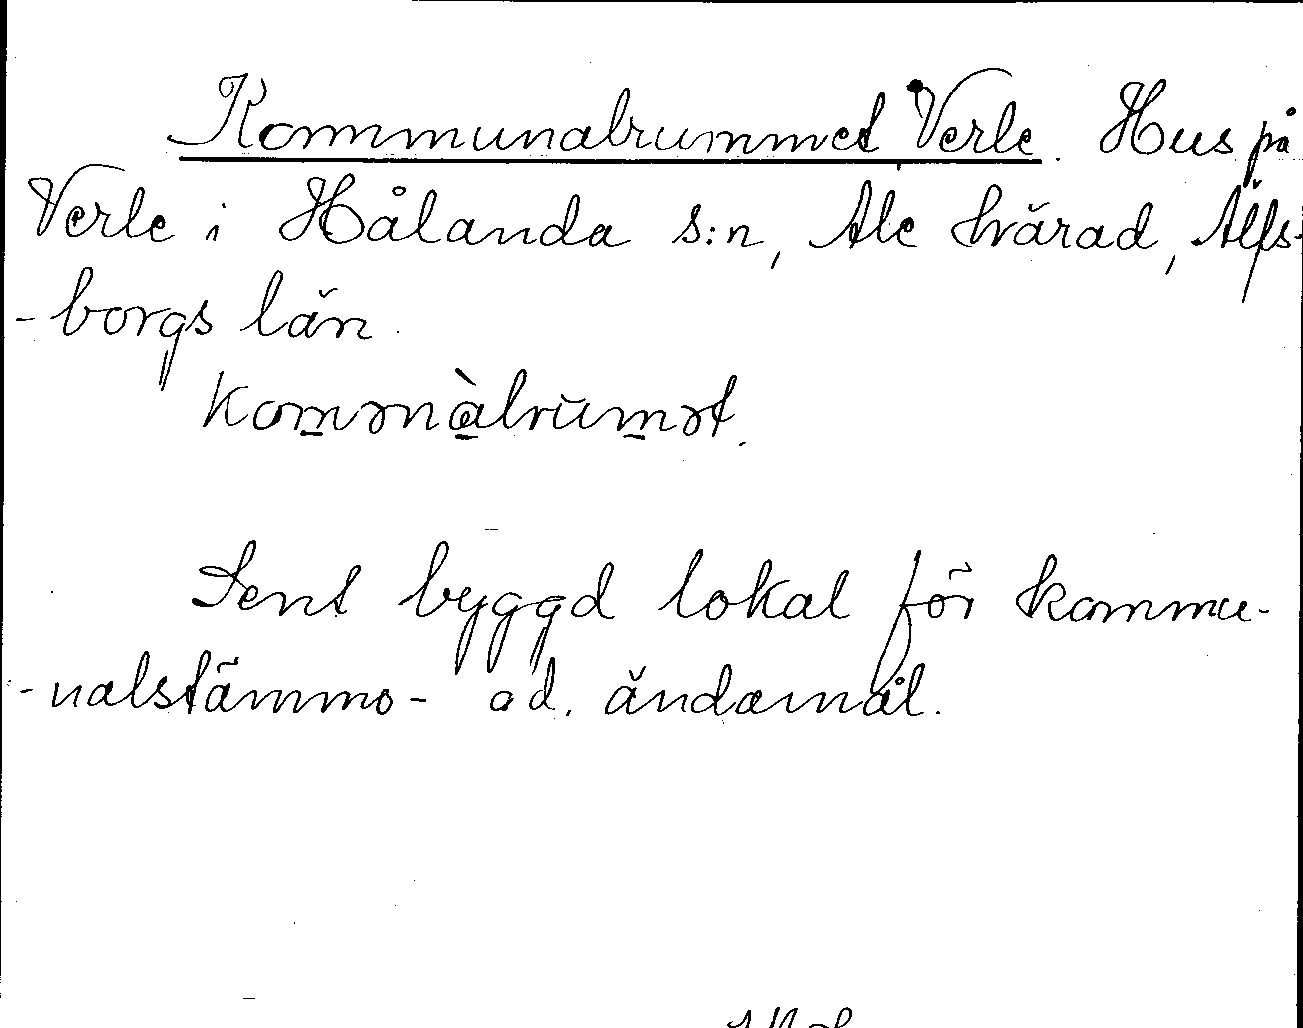 Kommunalrummet Verle. Hus på
Verle i Hålanda s:n, Ale härad, Älfs-
-borgs län.
komənàlrumət.
Sent byggd lokal för kommu-
-nalstämmo- od. ändamål.